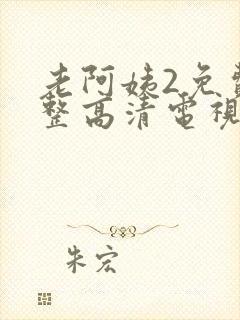 老阿姨2免費
整高清電視
朱宏